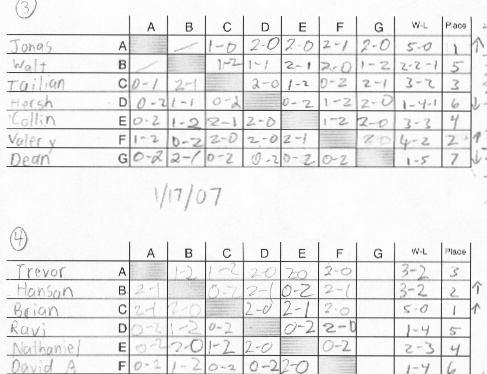 3
A B C D E F G W-L Place
Jonas A / 1-0 2-0 2-0 2-1 2-0 5-0 1 ↑
Walt B / 1-2 1-1 2-1 2-0 1-2 2-2-1 5
Tailian C 0-1 2-1 2-0 1-2 0-2 2-1 3-2 3
Hersh D 0-2 1-1 0-2 0-2 1-2 2-0 1-4-1 6 ↓
Collin E 0-2 1-2 2-1 2-0 1-2 2-0 3-3 4
Valery F 1-2 0-2 2-0 2-0 2-1 2-0 4-2 2 ↑
Dean G 0-2 2-1 0-2 0-2 0-2 0-2 1-5 7 ↓
1/17/07
4
A B C D E F G W-L Place
Trevor A 1-2 1-2 2-0 2-0 2-0 3-2 3
Hanson B 2-1 0-2 2-1 0-2 2-1 3-2 2 ↑
Brian C 2-1 2-0 2-0 2-1 2-0 5-0 1 ↑
Ravi D 0-2 1-2 0-2 0-2 2-0 1-4 5
Nathaniel E 0-2 2-0 1-2 2-0 0-2 2-3 4
David A F 0-2 1-2 0-2 0-2 2-0 1-4 6